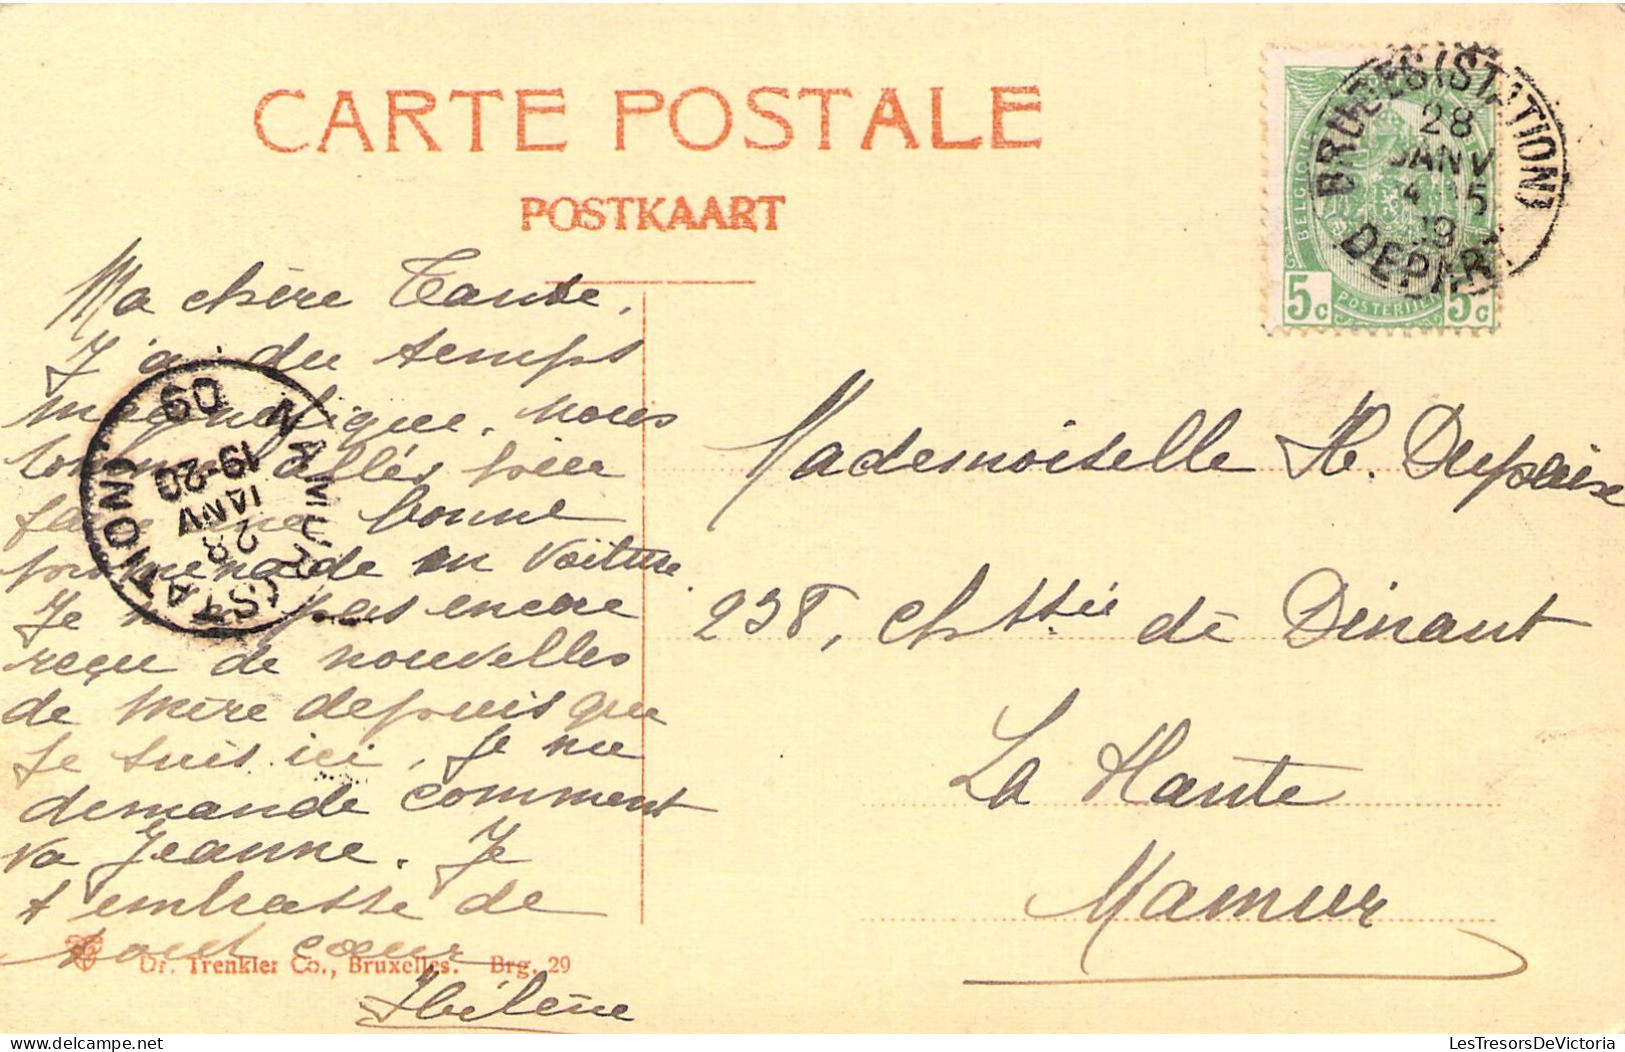 CARTE POSTALE
POSTKAART
BRUGES (STATION)
28
JANV
DEPART
BELGIQUE
5c POSTERIJEN 5c
Ma chère Tante,
J'ai du temps
magnifique, nous
sommes allés hier
faire une bonne
promenade en voiture
Je n'ai pas encore
reçu de nouvelles
de mère depuis que
je suis ici, je me
demande comment
va Jeanne. Je
t'embrasse de
tout cœur
Hélène
NAMUR (STATION)
28
JANV
19-20
09
Mademoiselle H.
238, chssée de Dinant
La Plante
Namur
Dr. Trenkler Co., Bruxelles. Brg. 29
LesTresorsDeVictoria.com